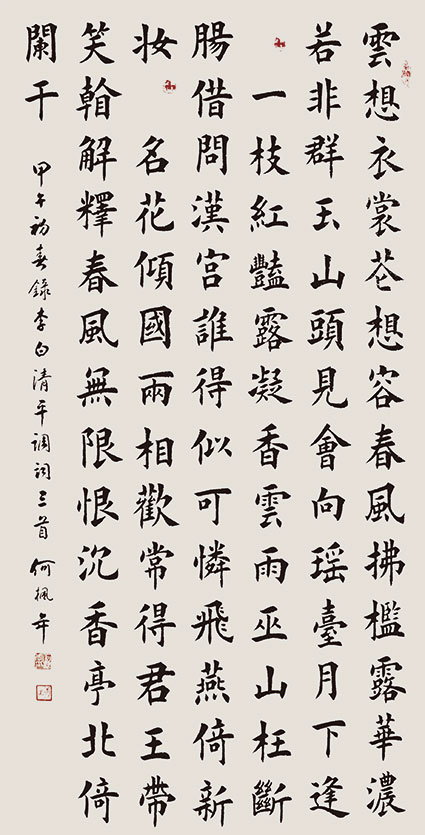 雲想衣裳花想容春風拂檻露華濃
若非群玉山頭見會向瑶臺月下逢
一枝紅豔露凝香雲雨巫山枉斷
腸借問漢宮誰得似可憐飛燕倚新
妆 名花傾國兩相歡常得君王帶
笑翰解釋春風無限恨沉香亭北倚
闌干
甲午初春錄李白清平调词三首 何